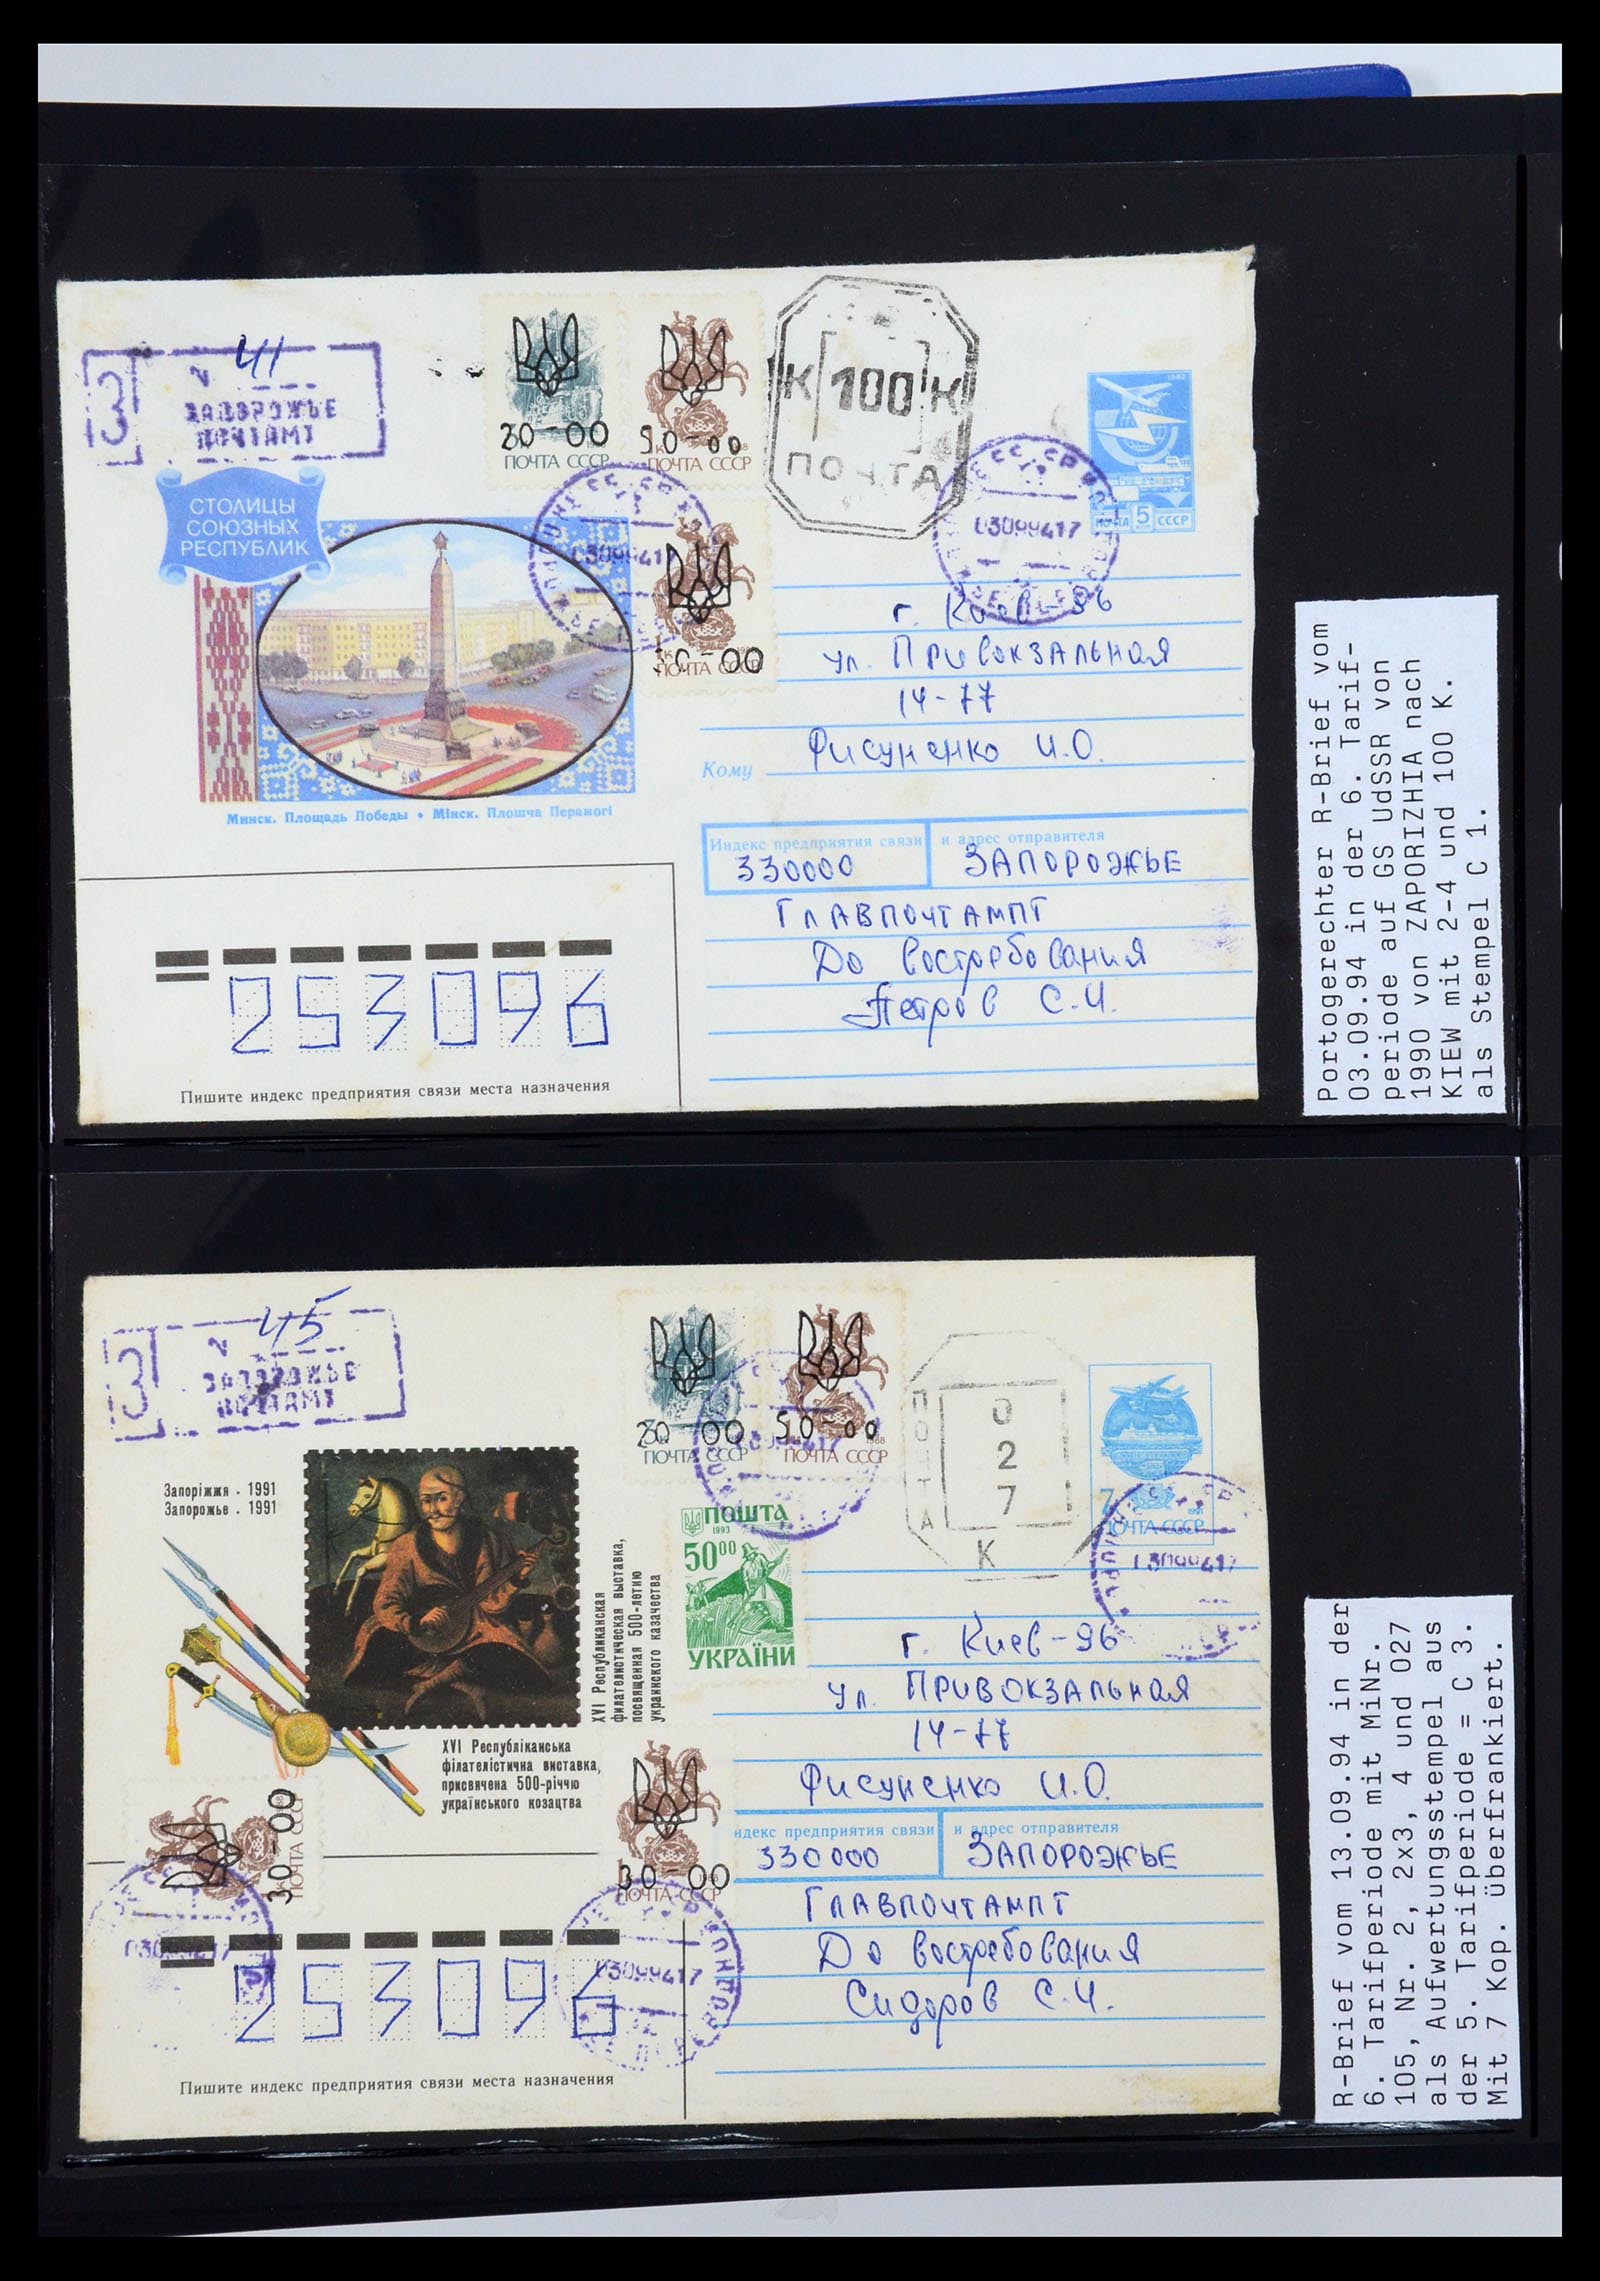 41
З
ЗАПОРОЖЬЕ
ПОЧТАМТ
20-00
ПОЧТА СССР
50-00
ПОЧТА СССР
К 100 К
ПОЧТА
1982
ПОЧТА 5 СССР
03099417
03099417
СТОЛИЦЫ
СОЮЗНЫХ
РЕСПУБЛИК
ПОЧТА СССР
Минск. Площадь Победы • Мінск. Плошча Перамогі
г. Киев-96
ул. Привокзальная
14-77
Кому Фисуненко И.О.
Индекс предприятия связи и адрес отправителя
330000 ЗАПОРОЖЬЕ
ГЛАВПОЧТАМПТ
До востребования
Петров С.И.
253096
Пишите индекс предприятия связи места назначения
Portogerechter R-Brief vom
03.09.94 in der 6. Tarif-
periode auf GS UdSSR von
1990 von ZAPORIZHIA nach
KIEW mit 2-4 und 100 K.
als Stempel C 1.
45
З
ЗАПОРОЖЬЕ
ПОЧТАМТ
20-00
ПОЧТА СССР
50-00
1988
ПОЧТА СССР
ПОЧТА
0
2
7
К
7
1991
ПОЧТА СССР
03099417
Запоріжжя . 1991
Запорожье . 1991
XVI Республиканская
филателистическая выставка,
посвященная 500-летию
украинского казачества
XVI Республіканська
філателістична виставка,
присвячена 500-річчю
українського козацтва
ПОШТА
1993
50⁰⁰
УКРАЇНИ
30-00
ПОЧТА СССР
30-00
ПОЧТА СССР
03099417
г. Киев-96
ул. ПРИВОКЗАЛЬНАЯ
14-77
Фисуненко И.О.
ндекс предприятия связи и адрес отправителя
330000 ЗАПОРОЖЬЕ
ГЛАВПОЧТАМПТ
До востребования
Сидоров С.И.
253096
Пишите индекс предприятия связи места назначения
R-Brief vom 13.09.94 in der
6. Tarifperiode mit MiNr.
105, Nr. 2, 2x3, 4 und 027
als Aufwertungsstempel aus
der 5. Tarifperiode = C 3.
Mit 7 Kop. überfrankiert.